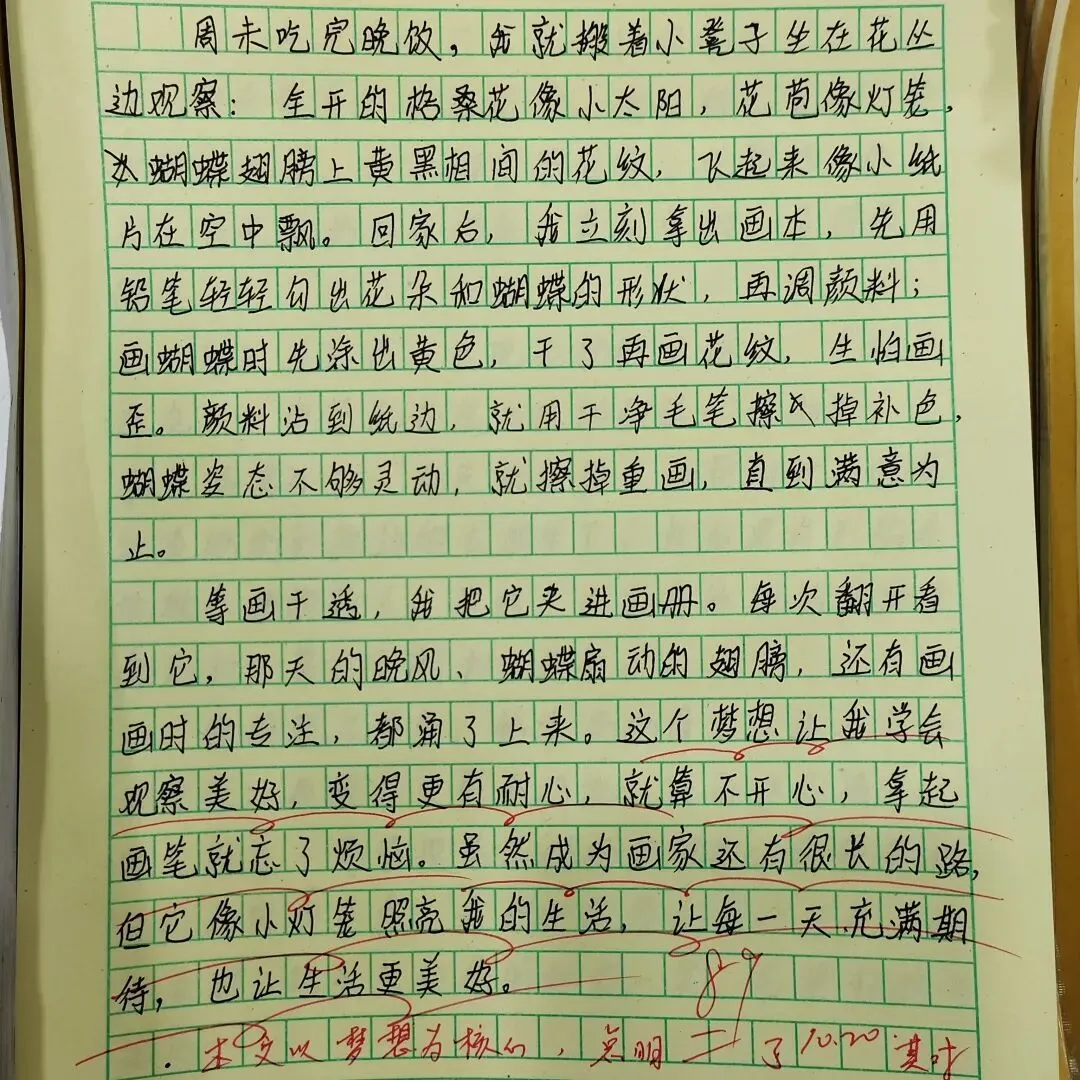 周末吃完晚饭，我就搬着小凳子坐在花丛
边观察：全开的格桑花像小太阳，花苞像灯笼，
蝴蝶翅膀上黄黑相间的花纹，飞起来像小纸
片在空中飘。回家后，我立刻拿出画本，先用
铅笔轻轻勾出花朵和蝴蝶的形状，再调颜料；
画蝴蝶时先涂出黄色，干了再画花纹，生怕画
歪。颜料沾到纸边，就用干净毛笔擦掉补色，
蝴蝶姿态不够灵动，就擦掉重画，直到满意为
止。
等画干透，我把它夹进画册。每次翻开看
到它，那天的晚风、蝴蝶扇动的翅膀，还有画
画时的专注，都涌了上来。这个梦想让我学会
观察美好，变得更有耐心，就算不开心，拿起
画笔就忘了烦恼。虽然成为画家还有很长的路，
但它像小灯笼照亮我的生活，让每一天充满期
待，也让生活更美好。
89
本文以梦想为核心，点明 了 10.20